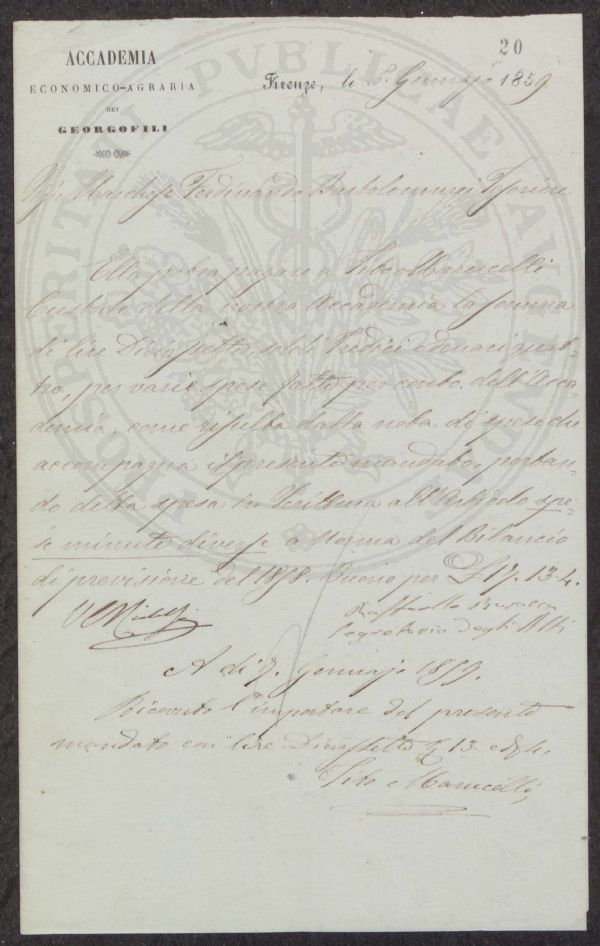 20
ACCADEMIA
ECONOMICO-AGRARIA
DEI
GEORGOFILI
Firenze, li 5. Gennajo 1859
Sig. Marchese Ferdinando Bartolommei Tesoriere
Ella potrà pagare a Tito Marucelli
Custode della nostra Accademia la somma
di lire Diciassette, soldi Tredici e denari quat-
tro, per varie spese fatte per conto dell'Acca-
demia, come risulta dalla nota di spese che
accompagna il presente mandato, portan-
do detta spesa in Scrittura all'Articolo spe-
se minute diverse a Norma del Bilancio
di previsione del 1858. Buono per £ 17. 13. 4.
Raffaello Busacca
Segretario degli Atti
A dì 7. Gennajo 1859.
Ricevuto l'importare del presente
mandato con lire Diciassette 13. e 4,
Tito Marucelli
PROSPERITATI PVBLICAE AVGENDAE